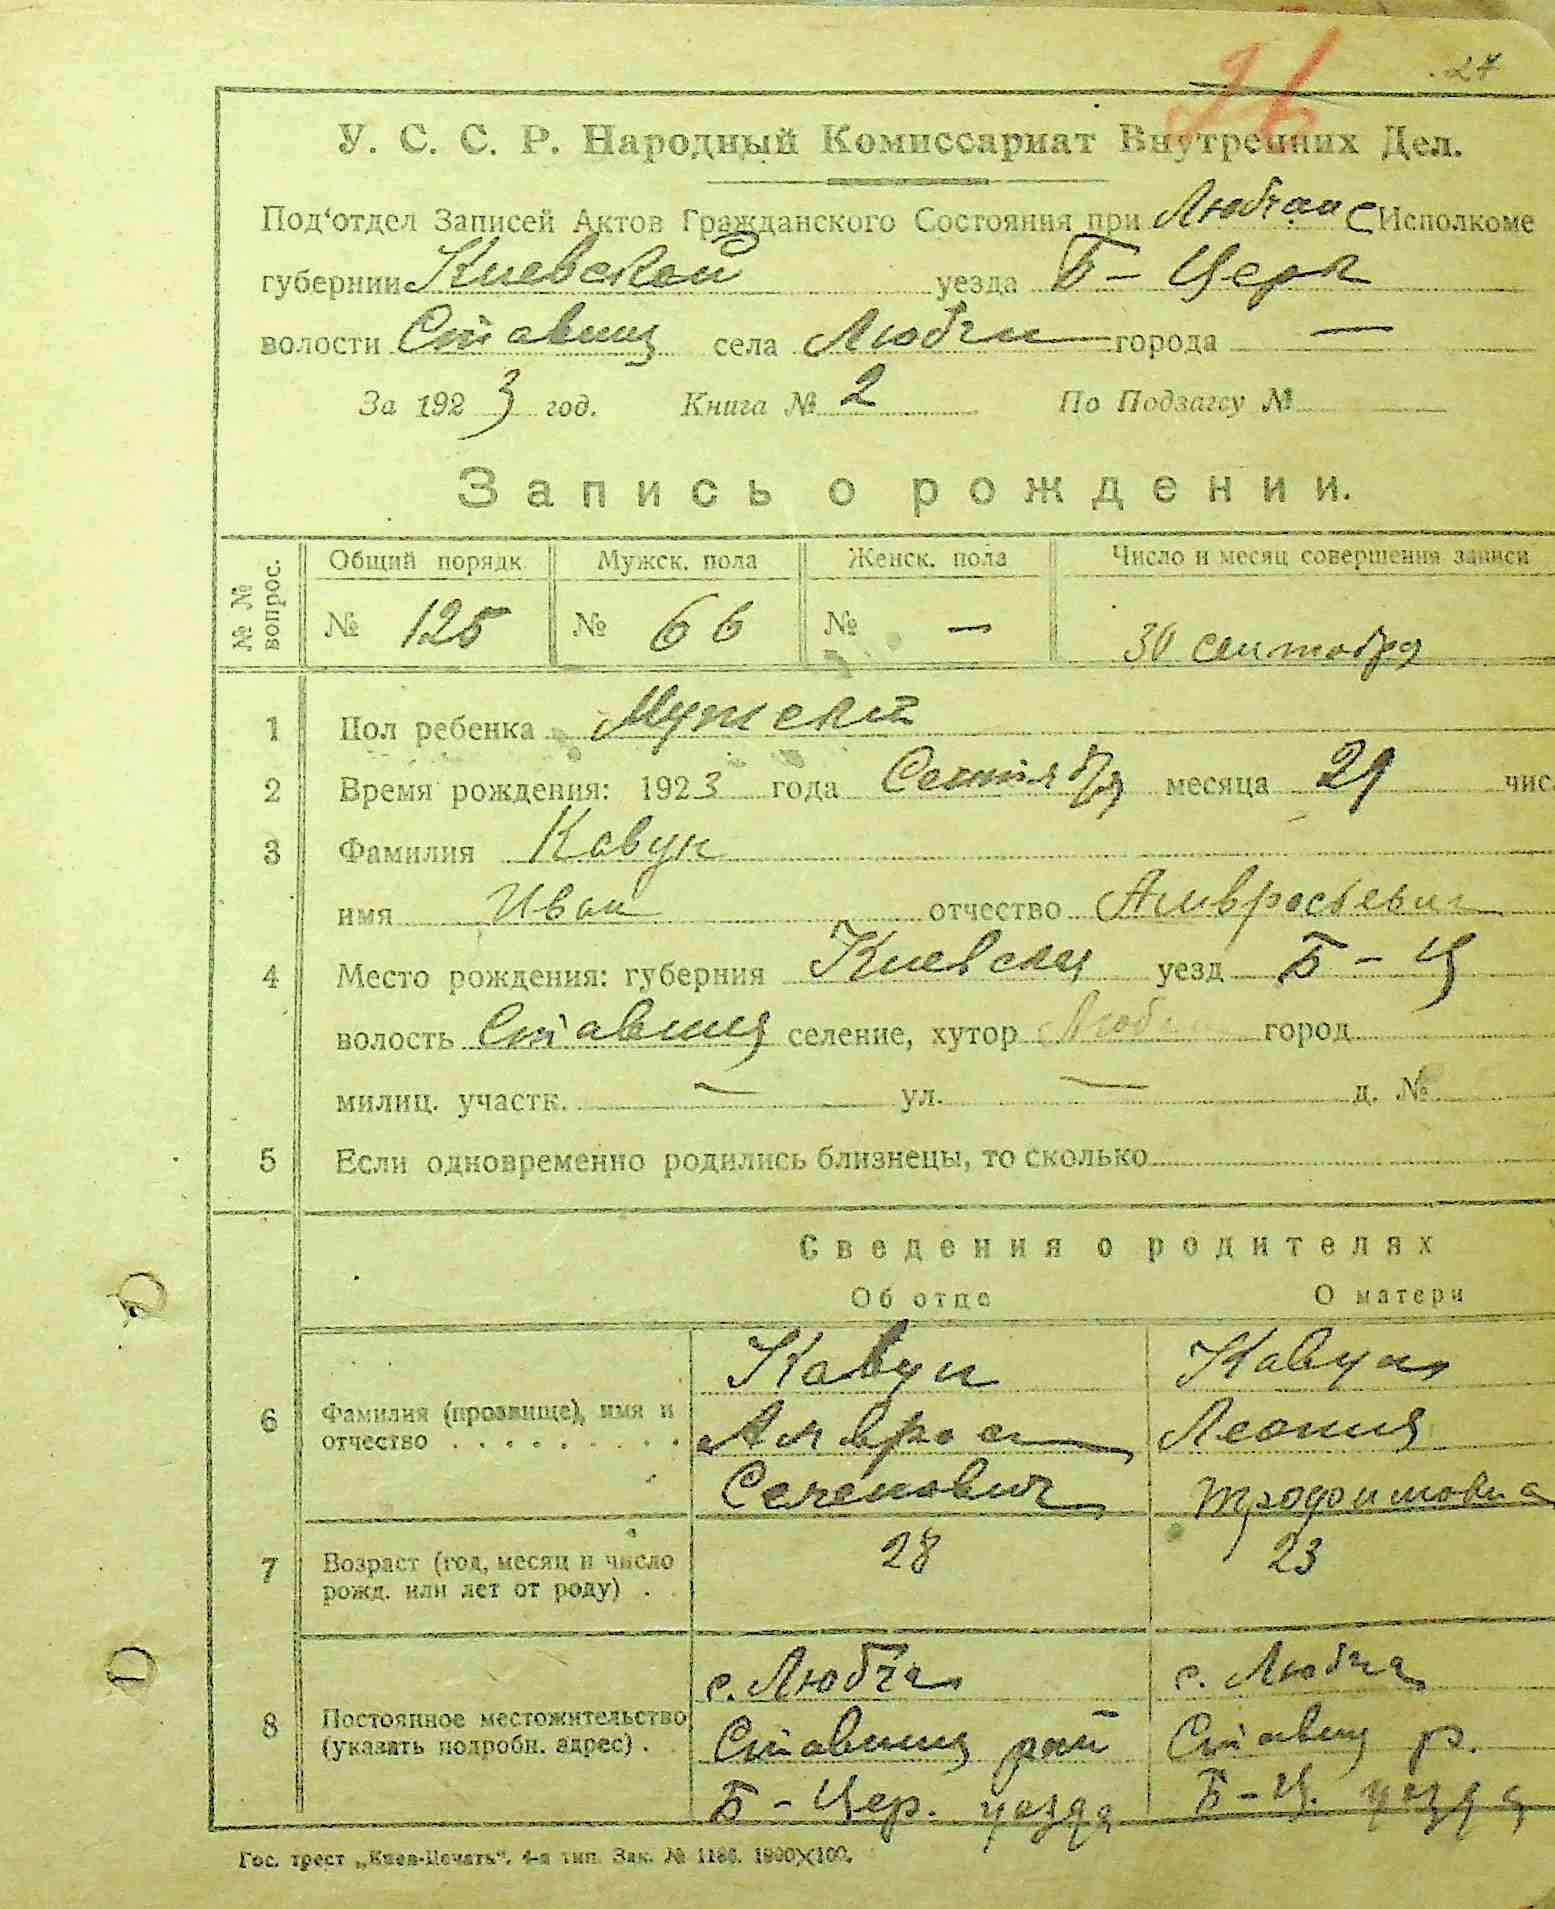 26
27
У. С. С. Р. Народный Комиссариат Внутренних Дел.
Под'отдел Записей Актов Гражданского Состояния при С Исполкоме
губернии Киевской уезда Б - Церк
волости Ставищ села Любчи города —
За 1923 год. Книга № 2 По Подзагсу №
Запись о рождении.
№ № вопрос. Общий порядк Мужск. пола Женск. пола Число и месяц совершения записи
№ 125 № 66 № — 30 сентября
1 Пол ребенка Мужской
2 Время рождения: 1923 года Сентября месяца 29 чис.
3 Фамилия Кавун
имя Иван отчество Амвросьевич
4 Место рождения: губерния Киевская уезд Б - Ц
волость Ставищ селение, хутор город
милиц. участк. — ул. — д. №
5 Если одновременно родились близнецы, то сколько
Сведения о родителях
Об отце О матери
6 Фамилия (прозвище), имя и отчество
Кавун Кавун
Амврос Леония
Семенович Трофимовна
7 Возраст (год, месяц и число рожд. или лет от роду) . 28 23
8 Постоянное местожительство (указать подробн. адрес) .
с. Любча с. Любча
Ставищ рай Ставищ р.
Б - Цер. уезда Б - Ц. уезда
Гос. трест „Киев-Печать“. 4-я тип. Зак. № 1186. 1800×100.